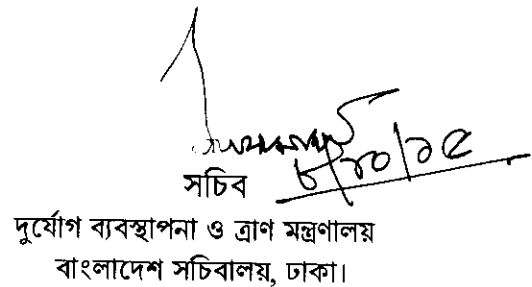 ৮/১০/১৫
সচিব
দুর্যোগ ব্যবস্থাপনা ও ত্রাণ মন্ত্রণালয়
বাংলাদেশ সচিবালয়, ঢাকা।